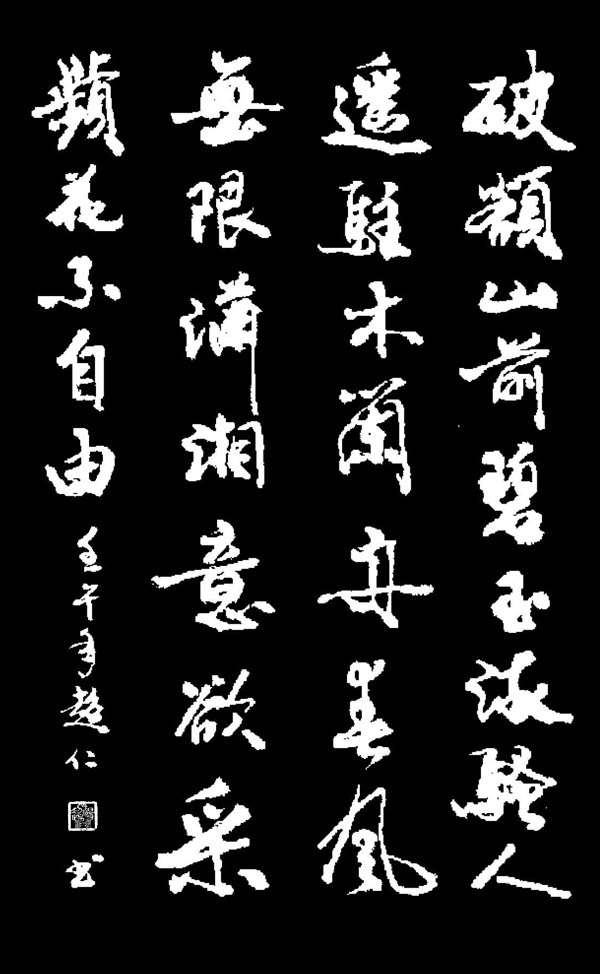 破額山前碧玉流騷人
遥駐木蘭舟春風
無限瀟湘意欲采
蘋花不自由
壬午年仁书